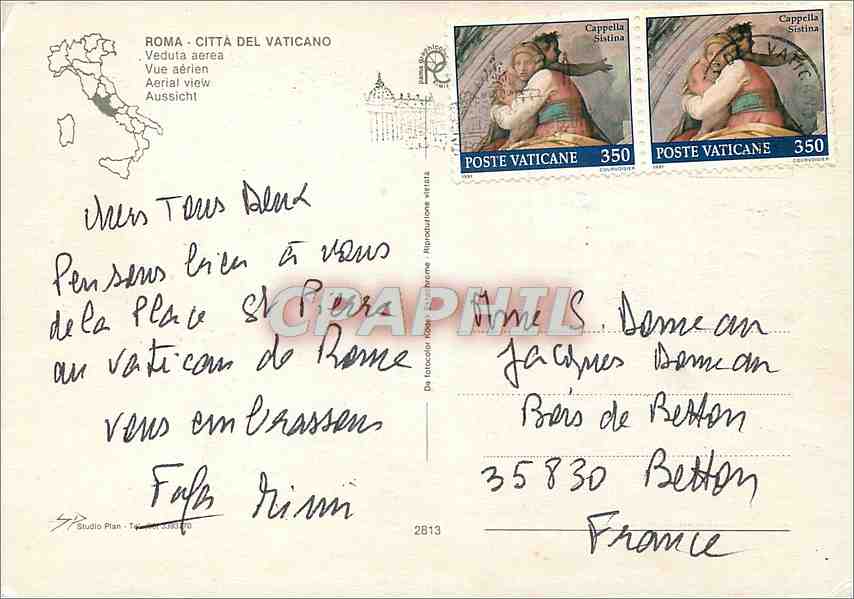 ROMA - CITTÀ DEL VATICANO
Veduta aerea
Vue aérien
Aerial view
Aussicht
Cappella
Sistina
POSTE VATICANE 350
1991 COURVOISIER
Cappella
Sistina
POSTE VATICANE 350
1991 COURVOISIER
VATIC
chers Tous Deux
Pensons bien à vous
de la Place St Pierre
au Vatican de Rome
vous embrassons
Fafa Mimi
Da fotocolor Kodak Ektachrome - Riproduzione vietata
CPAPHIL
S. Domean
Jacques Domean
Bois de Betton
35830 Betton
France
Studio Plan - Tel.
2813